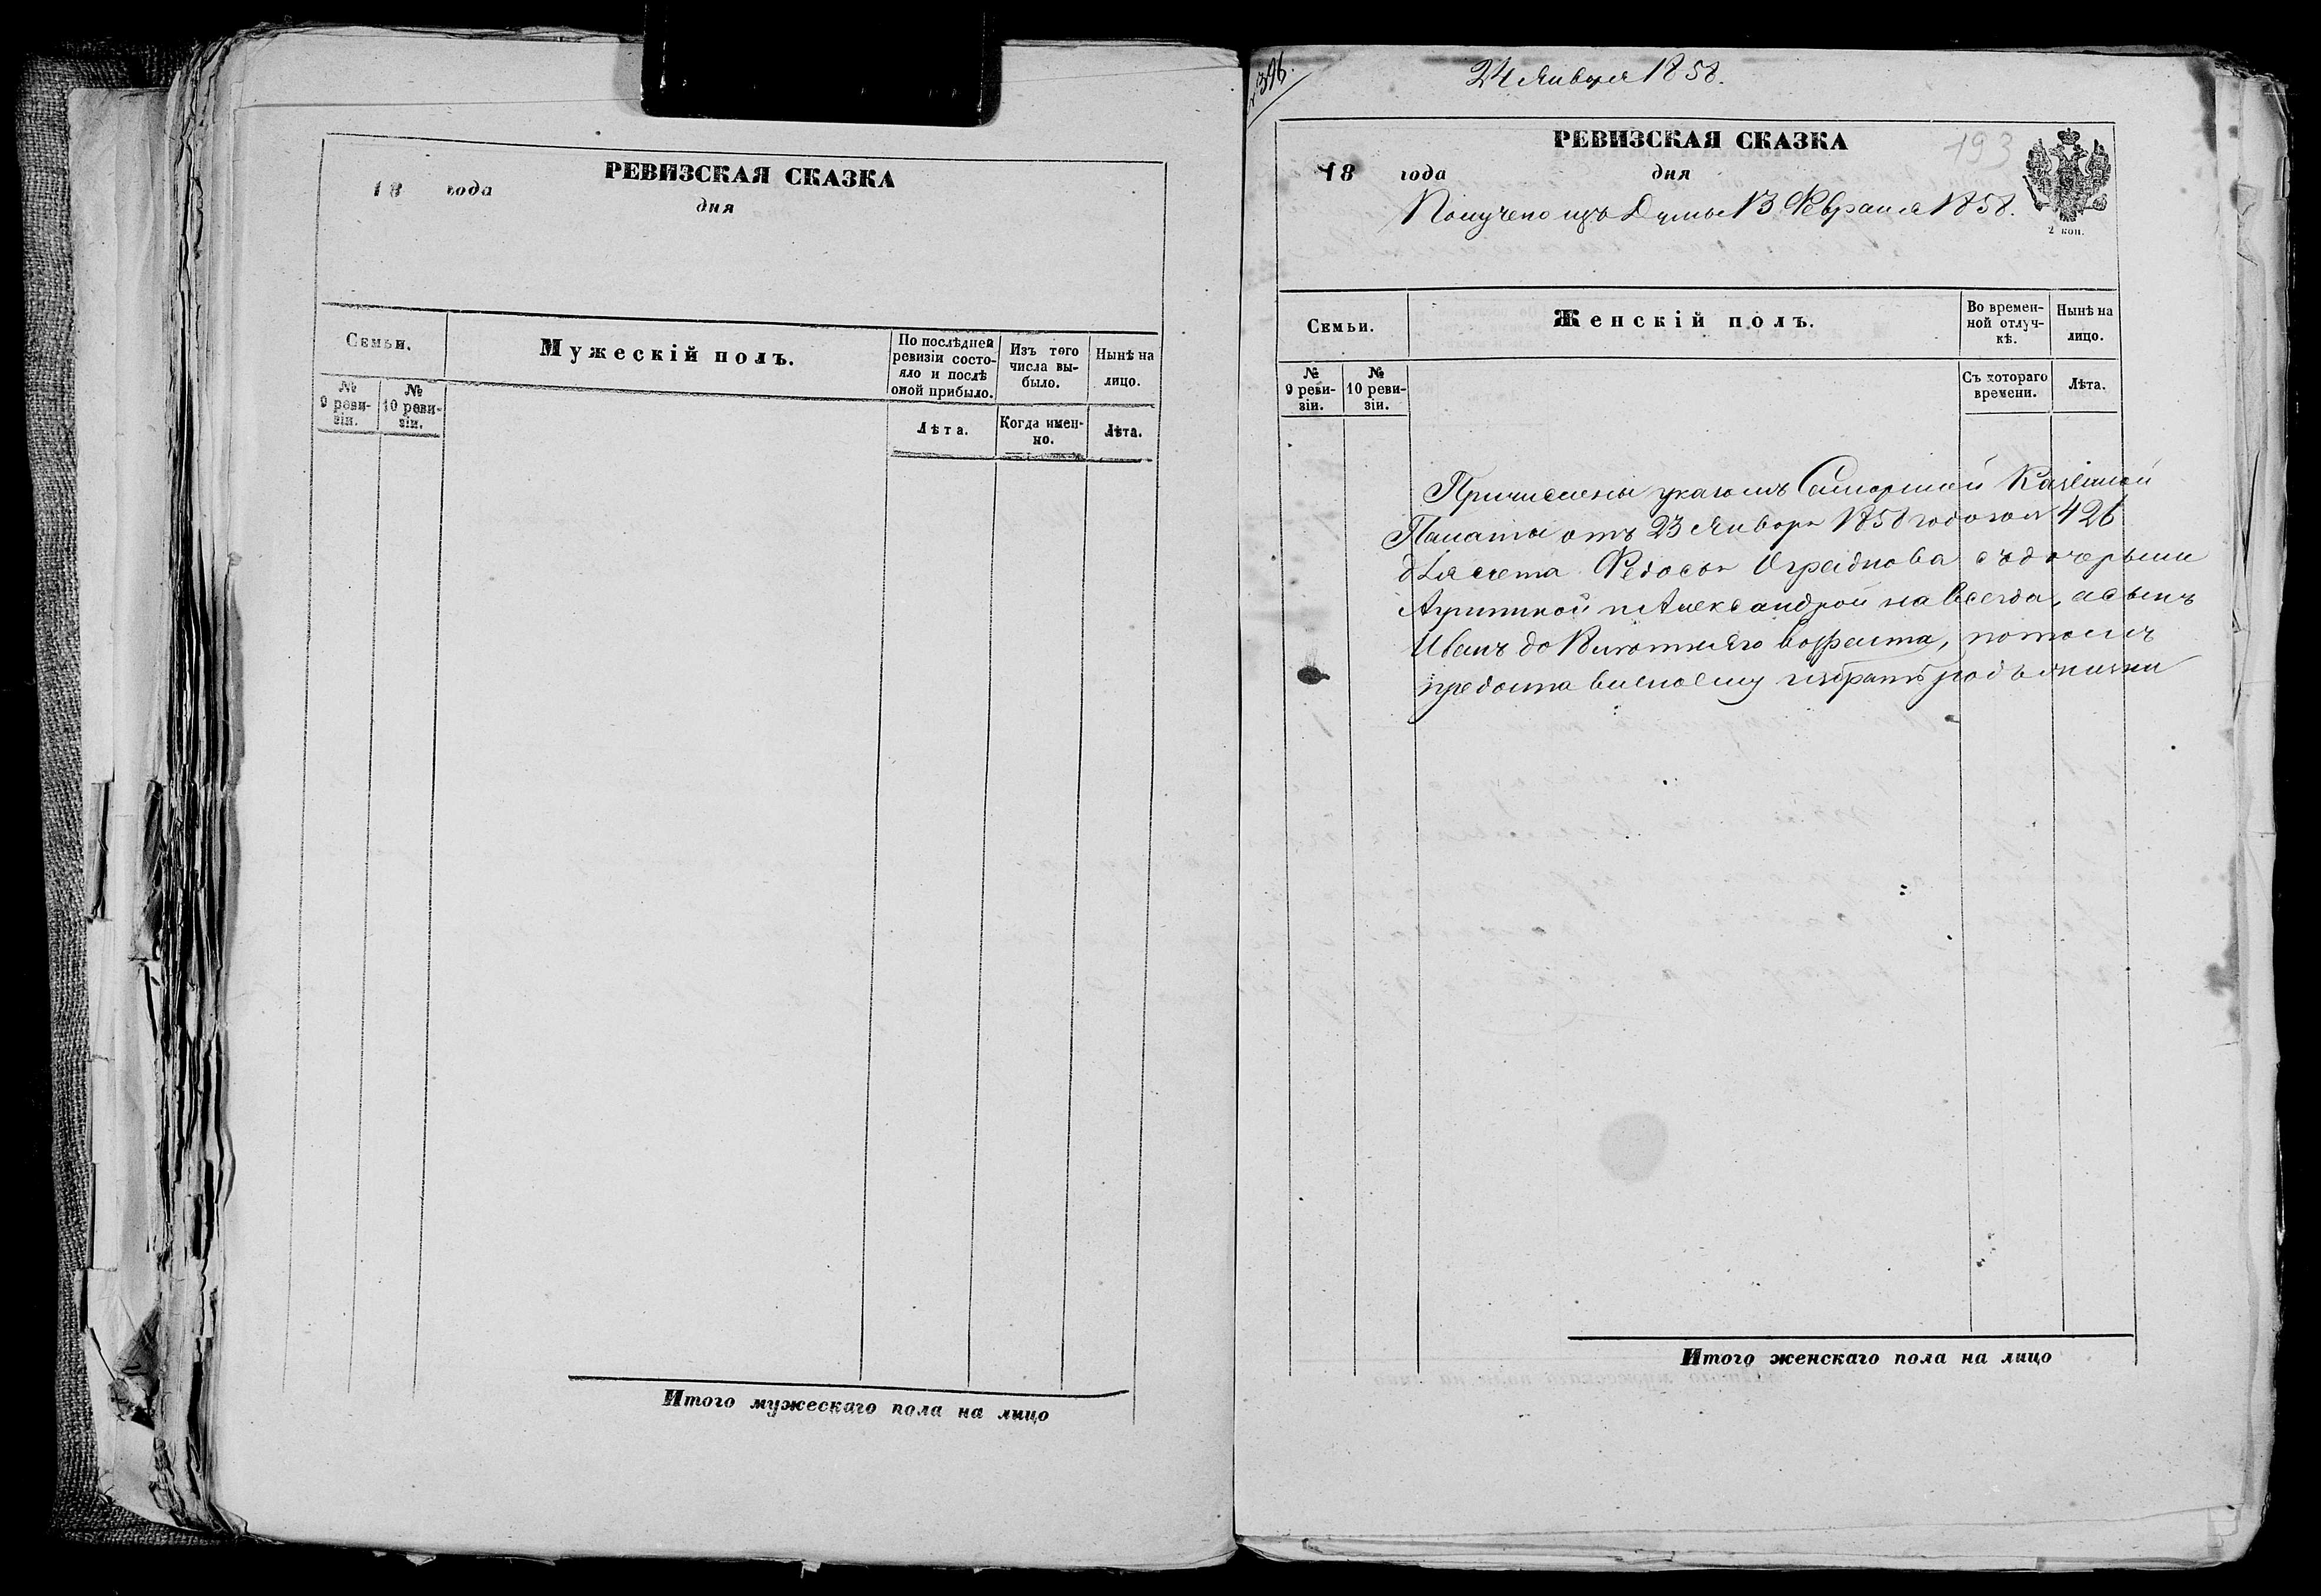 РЕВИЗСКАЯ СКАЗКА
18 года
дня
Семьи.
Мужескій полъ.
По послѣдней ревизіи состояло и послѣ оной прибыло.
Изъ того числа выбыло.
Нынѣ на лицо.
№ 9 реви-зіи.
№ 10 реви-зіи.
Лѣта.
Когда имен-но.
Лѣта.
Итого мужескаго пола на лицо
396.
24 Января 1858.
РЕВИЗСКАЯ СКАЗКА
193
18 года
дня
2 коп.
Получено изъ Думы 13 Февраля 1858.
Семьи.
Женскій полъ.
Во времен-ной отлуч-кѣ.
Нынѣ на лицо.
№ 9 реви-зіи.
№ 10 реви-зіи.
Съ котораго времени.
Лѣта.
Причислены указомъ Самарской Казенной
Палаты отъ 23 Января 1858 года за № 426
для счета Федосья съ дочерьми
и Александрой на всегда, а сынъ
Иванъ до возраста, потомъ
предоставлено ему избрать родъ жизни
Итого женскаго пола на лицо